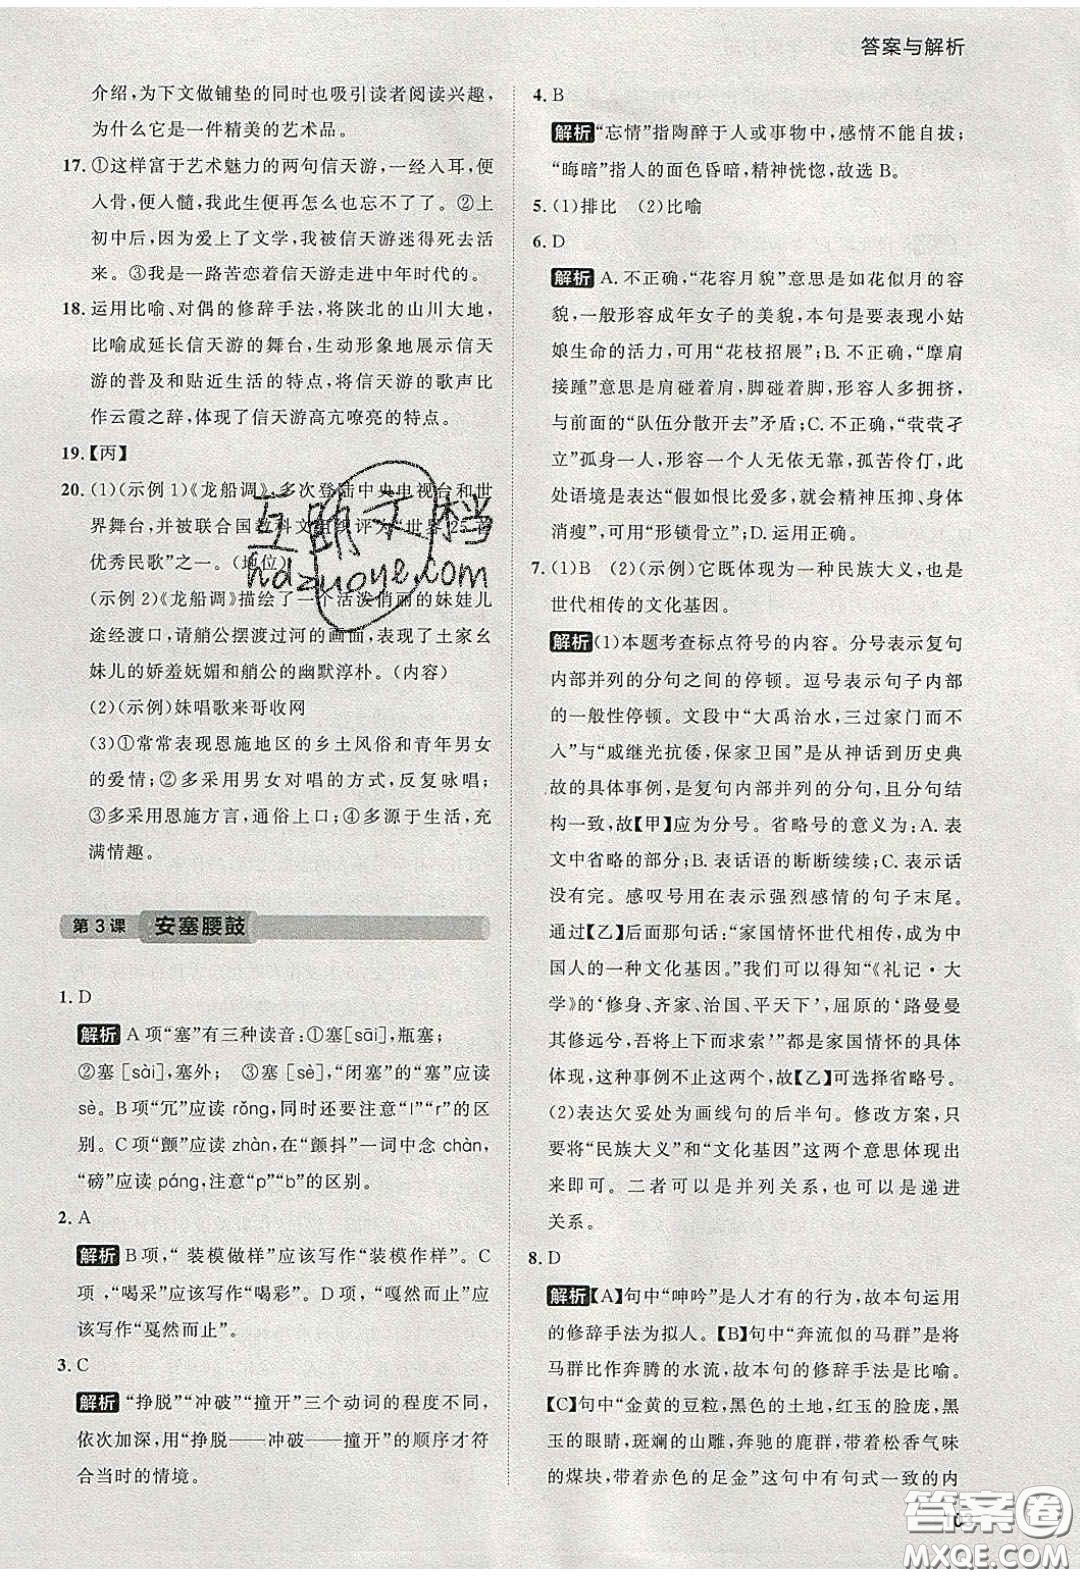 答案与解析
介绍,为下文做铺垫的同时也吸引读者阅读兴趣,
为什么它是一件精美的艺术品。
17. ①这样富于艺术魅力的两句信天游,一经人耳,便
人骨,便人髓,我此生便再怎么也忘不了了。②上
初中后,因为爱上了文学,我被信天游迷得死去活
来。③我是一路苦恋着信天游走进中年时代的。
18. 运用比喻、对偶的修辞手法,将陕北的山川大地,
比喻成延长信天游的舞台,生动形象地展示信天
游的普及和贴近生活的特点,将信天游的歌声比
作云霞之辞,体现了信天游高亢嘹亮的特点。
19. 【丙】
20. (1)(示例1)《龙船调》多次登陆中央电视台和世
界舞台,并被联合国教科文组织评为“世界25首
优秀民歌”之一。(地位)
(示例2)《龙船调》描绘了一个活泼俏丽的妹娃儿
途经渡口,请艄公摆渡过河的画面,表现了土家幺
妹儿的娇羞妩媚和艄公的幽默淳朴。(内容)
(2)(示例)妹唱歌来哥收网
(3)①常常表现恩施地区的乡土风俗和青年男女
的爱情;②多采用男女对唱的方式,反复咏唱;
③多采用恩施方言,通俗上口;④多源于生活,充
满情趣。
第3课 安塞腰鼓
1. D
解析 A项“塞”有三种读音:①塞[sāi],瓶塞;
②塞[sài],塞外; ③塞[sè],“闭塞”的“塞”应读
sè。B项“冗”应读rǒng,同时还要注意“l”“r”的区
别。C项“颤”应读zhàn,在“颤抖”一词中念chàn,
“磅”应读páng,注意“p”“b”的区别。
2. A
解析 B项,“装模做样”应该写作“装模作样”。C
项,“喝采”应该写作“喝彩”。D项,“嘎然而止”应
该写作“戛然而止”。
3. C
解析 “挣脱”“冲破”“撞开”三个动词的程度不同,
依次加深,用“挣脱——冲破——撞开”的顺序才符
合当时的情境。
4. B
解析 “忘情”指陶醉于人或事物中,感情不能自拔;
“晦暗”指人的面色昏暗,精神恍惚,故选B。
5. (1)排比 (2)比喻
6. D
解析 A. 不正确,“花容月貌”意思是如花似月的容
貌,一般形容成年女子的美貌,本句是要表现小姑
娘生命的活力,可用“花枝招展”;B. 不正确,“摩肩
接踵”意思是肩碰着肩,脚碰着脚,形容人多拥挤,
与前面的“队伍分散开去”矛盾;C. 不正确,“茕茕孑
立”孤身一人,形容一个人无依无靠,孤苦伶仃,此
处语境是表达“假如恨比爱多,就会精神压抑、身体
消瘦”,可用“形锁骨立”;D. 运用正确。
7. (1)B (2)(示例)它既体现为一种民族大义,也是
世代相传的文化基因。
解析 (1)本题考查标点符号的内容。分号表示复句
内部并列的分句之间的停顿。逗号表示句子内部
的一般性停顿。文段中“大禹治水,三过家门而不
入”与“戚继光抗倭,保家卫国”是从神话到历史典
故的具体事例,是复句内部并列的分句,且分句间
结构一致,故【甲】应为分号。省略号的意义为:A. 表
文中省略的部分;B. 表话语的断断续续;C. 表示话
没有完。感叹号用在表示强烈感情的句子末尾。
由【乙】后面那句话:“家国情怀世代相传,已成为中
国人的一种文化基因。”我们可以得知“《礼记·大
学》的‘修身、齐家、治国、平天下’,屈原的‘路曼曼
其修远兮,吾将上下而求索’”都是家国情怀的具体
体现,这种事例不止这两个,故【乙】可选择省略号。
(2)表达欠妥处为画线句的后半句。修改方案,只
要将“民族大义”和“文化基因”这两个意思体现出
来即可。二者可以是并列关系,也可以是递进
关系。
8. D
解析 【A】句中“呻吟”是人才有的行为,故本句运用
的修辞手法为拟人。【B】句中“奔流似的马群”是将
马群比作奔腾的水流,故本句的修辞手法是比喻。
【C】句中“金黄的豆粒,黑色的土地,红玉的脸庞,黑
玉的眼睛,斑斓的山雕,奔驰的鹿群,带着松香气味
的煤块,带着赤色的足金”这句中有句式一致的内
互助文档
hdzuoye.com
答案圈
MXQE.COM